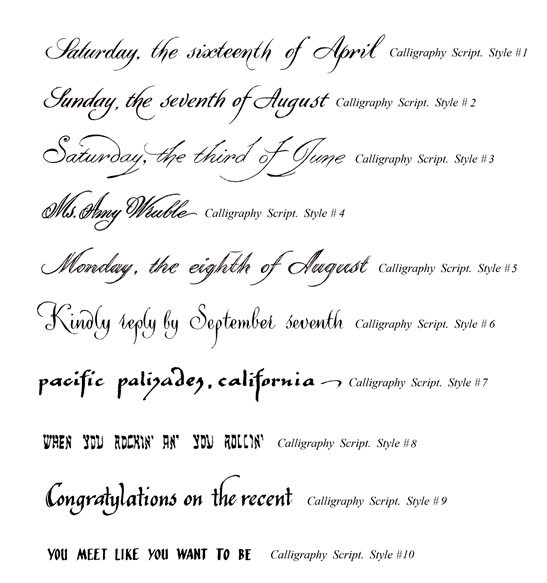 Saturday, the sixteenth of April Calligraphy Script. Style #1
Sunday, the seventh of August Calligraphy Script. Style #2
Saturday, the third of June Calligraphy Script. Style #3
Ms. Amy Wruble Calligraphy Script. Style #4
Monday, the eighth of August Calligraphy Script. Style #5
Kindly reply by September seventh Calligraphy Script. Style #6
pacific palisades, california Calligraphy Script. Style #7
WHEN YOU ROCKIN' AN' YOU ROLLIN' Calligraphy Script. Style #8
Congratylations on the recent Calligraphy Script. Style #9
YOU MEET LIKE YOU WANT TO BE Calligraphy Script. Style #10